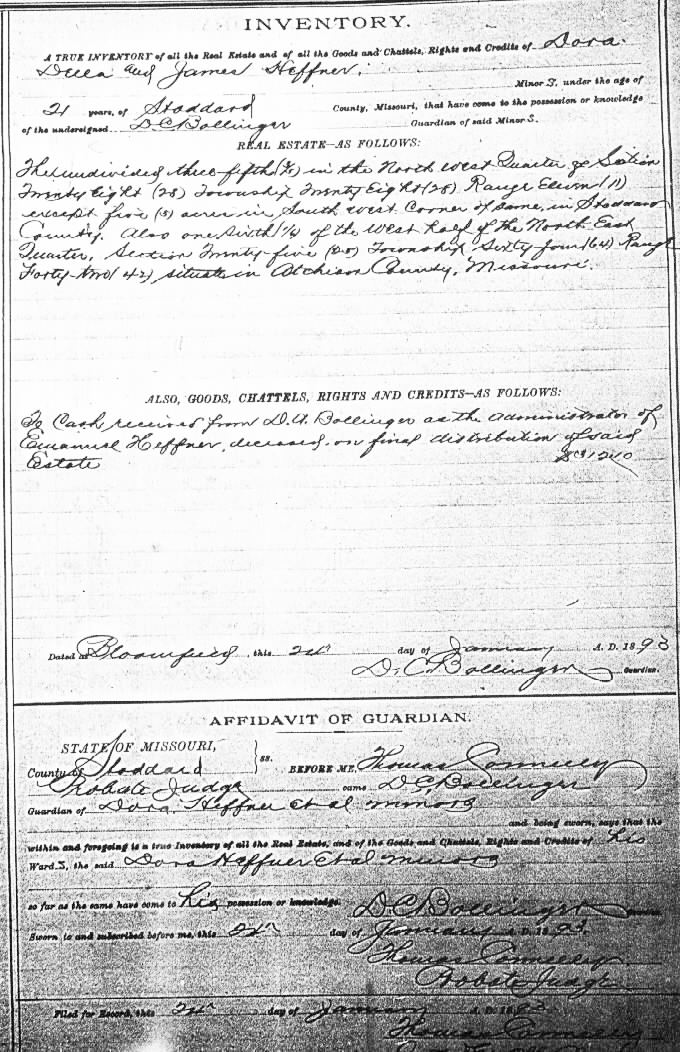 INVENTORY.
A TRUE INVENTORY of all the Real Estate and of all the Goods and Chattels, Rights and Credits of Dora
Della and James Heffner,
Minors, under the age of
21 years, of Stoddard County, Missouri, that have come to the possession or knowledge
of the undersigned D.C. Bollinger Guardian of said Minors.
REAL ESTATE—AS FOLLOWS:
The undivided three-fifth (3/5) in the North West Quarter of Section
Twenty Eight (28) Township Twenty Eight (28) Range Eleven (11)
except five (5) acres in South West Corner of same, in Stoddard
County. Also one sixth (1/6) of the West half of the North East
Quarter, Section Twenty-five (25) Township Sixty four (64) Range
Forty-two (42), situate in Atchison County, Missouri.
ALSO, GOODS, CHATTELS, RIGHTS AND CREDITS—AS FOLLOWS:
To Cash received from D.A. Bollinger as the administrator of
Emanuel Heffner, deceased, on final distribution of said
Estate
Dated at Bloomfield this 24th day of January A. D. 1893
D. C. Bollinger Guardian.
AFFIDAVIT OF GUARDIAN.
STATE OF MISSOURI,
County of Stoddard ss. BEFORE ME, Thomas Connelly
Probate Judge came D.C. Bollinger
Guardian of Dora Heffner et al minors
and being sworn, says that the
within and foregoing is a true Inventory of all the Real Estate, and of the Goods and Chattels, Rights and Credits of his
Wards, the said Dora Heffner et al minors
so far as the same have come to his possession or knowledge.
D.C. Bollinger
Sworn to and subscribed before me, this 24th day of January A. D. 1893.
Thomas Connelly
Probate Judge
Filed for Record, this 24th day of January A. D. 1893
Thomas Connelly